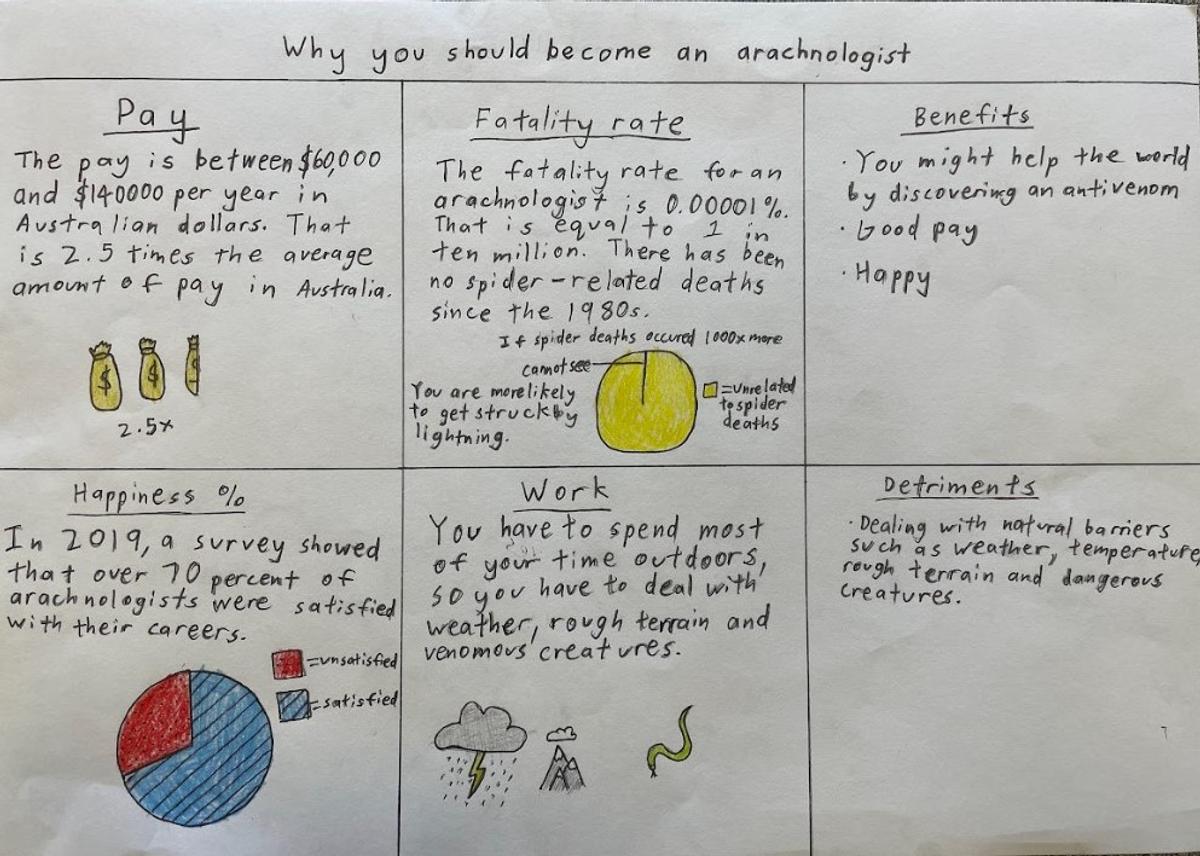 Why you should become an arachnologist
Pay
The pay is between $60,000
and $140000 per year in
Australian dollars. That
is 2.5 times the average
amount of pay in Australia.
$ $ $
2.5x
Fatality rate
The fatality rate for an
arachnologist is 0.00001%.
That is equal to 1 in
ten million. There has been
no spider-related deaths
since the 1980s.
If spider deaths occured 1000x more
cannot see
You are more likely
to get struck by
lightning.
=unrelated
to spider
deaths
Benefits
· You might help the world
by discovering an antivenom
· Good pay
· Happy
Happiness %
In 2019, a survey showed
that over 70 percent of
arachnologists were satisfied
with their careers.
=unsatisfied
=satisfied
Work
You have to spend most
of your time outdoors,
so you have to deal with
weather, rough terrain and
venomous creatures.
Detriments
· Dealing with natural barriers
such as weather, temperature,
rough terrain and dangerous
creatures.